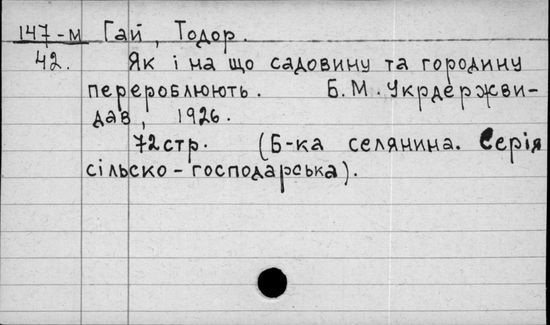 147-м Гай, Тодор.
42. Як і на що садовину та городину
перероблюють. Б.М. Укрдержви-
дав, 1926.
72стр. (Б-ка селянина. Серія
сільско-господарська).